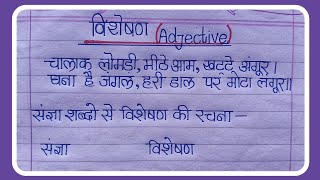 विशेषण (Adjective)
चालाक लोमड़ी, मीठे आम, खट्टे अंगूर।
घना है जंगल, हरी डाल पर मोटा लंगूर॥
संज्ञा शब्दो से विशेषण की रचना –
संज्ञा विशेषण